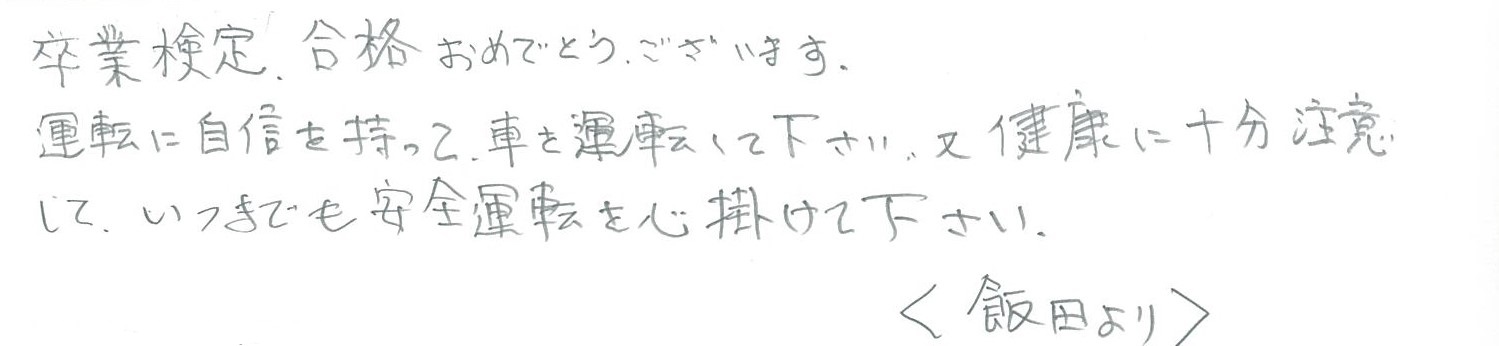 卒業検定、合格おめでとう、ございます。
運転に自信を持って、車を運転して下さい。又健康に十分注意
して、いつまでも安全運転を心掛けて下さい。
＜飯田より＞